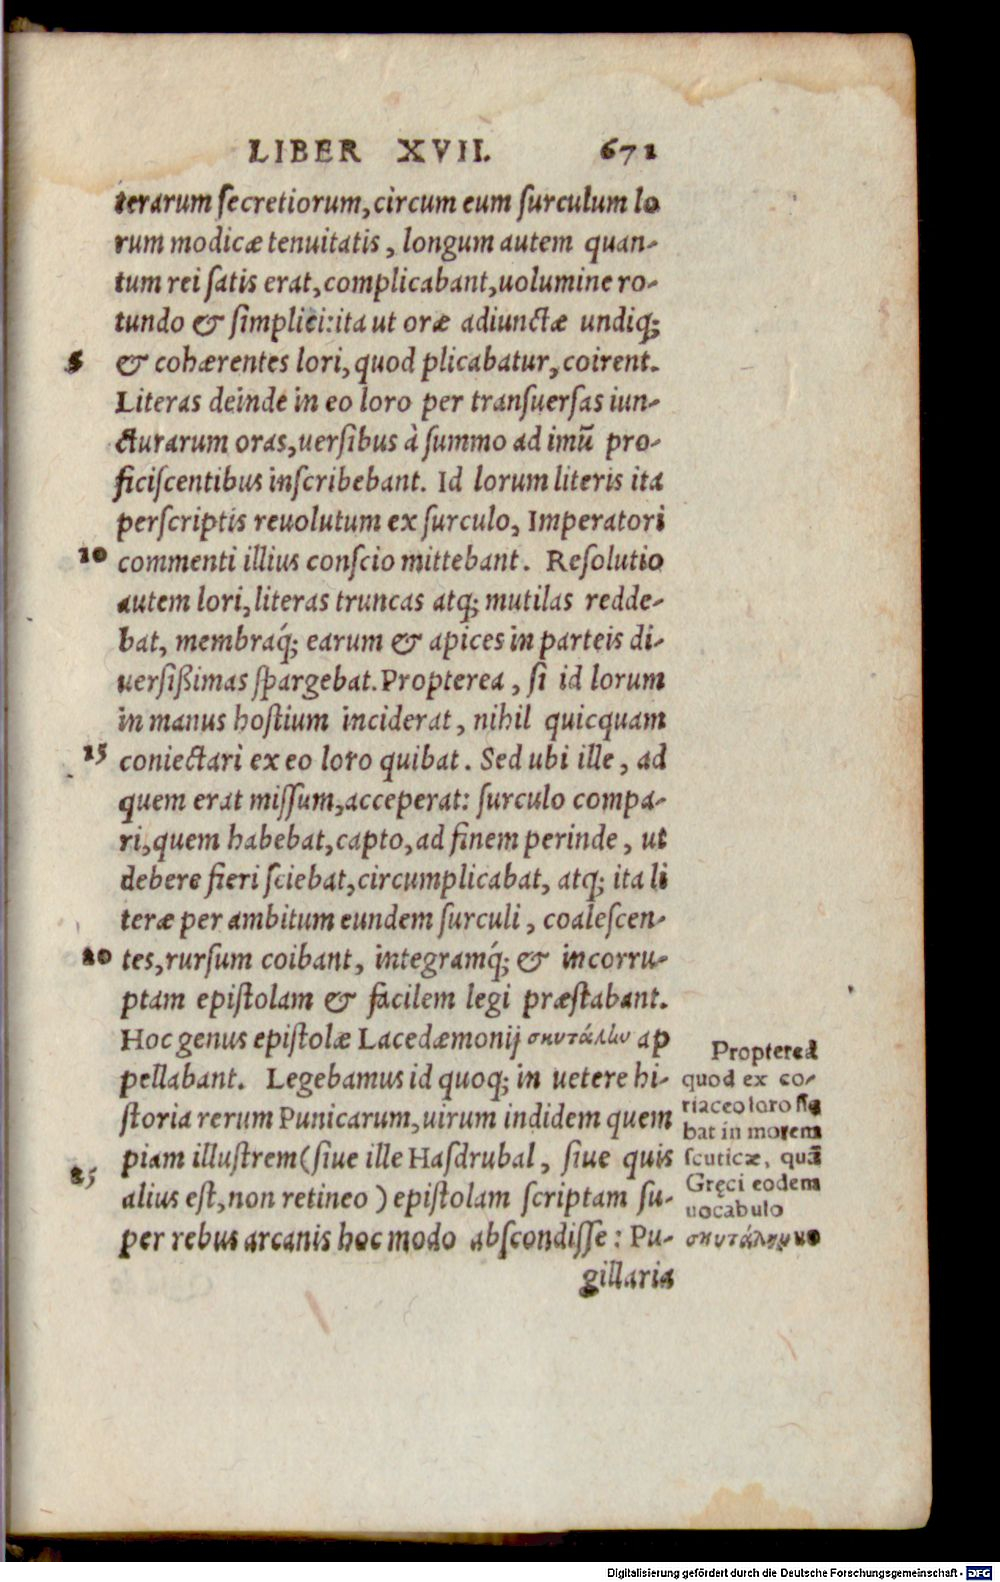 LIBER XVII. 671
terarum secretiorum, circum eum surculum lo
rum modicæ tenuitatis, longum autem quan-
tum rei satis erat, complicabant, uolumine ro-
tundo & simplici: ita ut oræ adiunctæ undiq;
5 & cohærentes lori, quod plicabatur, coirent.
Literas deinde in eo loro per transuersas iun-
cturarum oras, uersibus à summo ad imũ pro-
ficiscentibus inscribebant. Id lorum literis ita
perscriptis reuolutum ex surculo, Imperatori
10 commenti illius conscio mittebant. Resolutio
autem lori, literas truncas atq; mutilas redde-
bat, membraq́; earum & apices in parteis di-
uersißimas spargebat. Propterea, si id lorum
in manus hostium inciderat, nihil quicquam
15 coniectari ex eo loro quibat. Sed ubi ille, ad
quem erat missum, acceperat: surculo compa-
ri, quem habebat, capto, ad finem perinde, ut
debere fieri sciebat, circumplicabat, atq; ita li
teræ per ambitum eundem surculi, coalescen-
20 tes, rursum coibant, integramq́; & incorru-
ptam epistolam & facilem legi præstabant.
Hoc genus epistolæ Lacedæmonij σκυτάλην ap
pellabant. Legebamus id quoq; in uetere hi-
storia rerum Punicarum, uirum indidem quem
25 piam illustrem (siue ille Hasdrubal, siue quis
alius est, non retineo) epistolam scriptam su-
per rebus arcanis hoc modo abscondisse: Pu-
gillaria
Propterea
quod ex co-
riaceo loro fie
bat in morem
scuticæ, quã
Gręci eodem
uocabulo
σκυτάλην uo
Digitalisierung gefördert durch die Deutsche Forschungsgemeinschaft - DFG